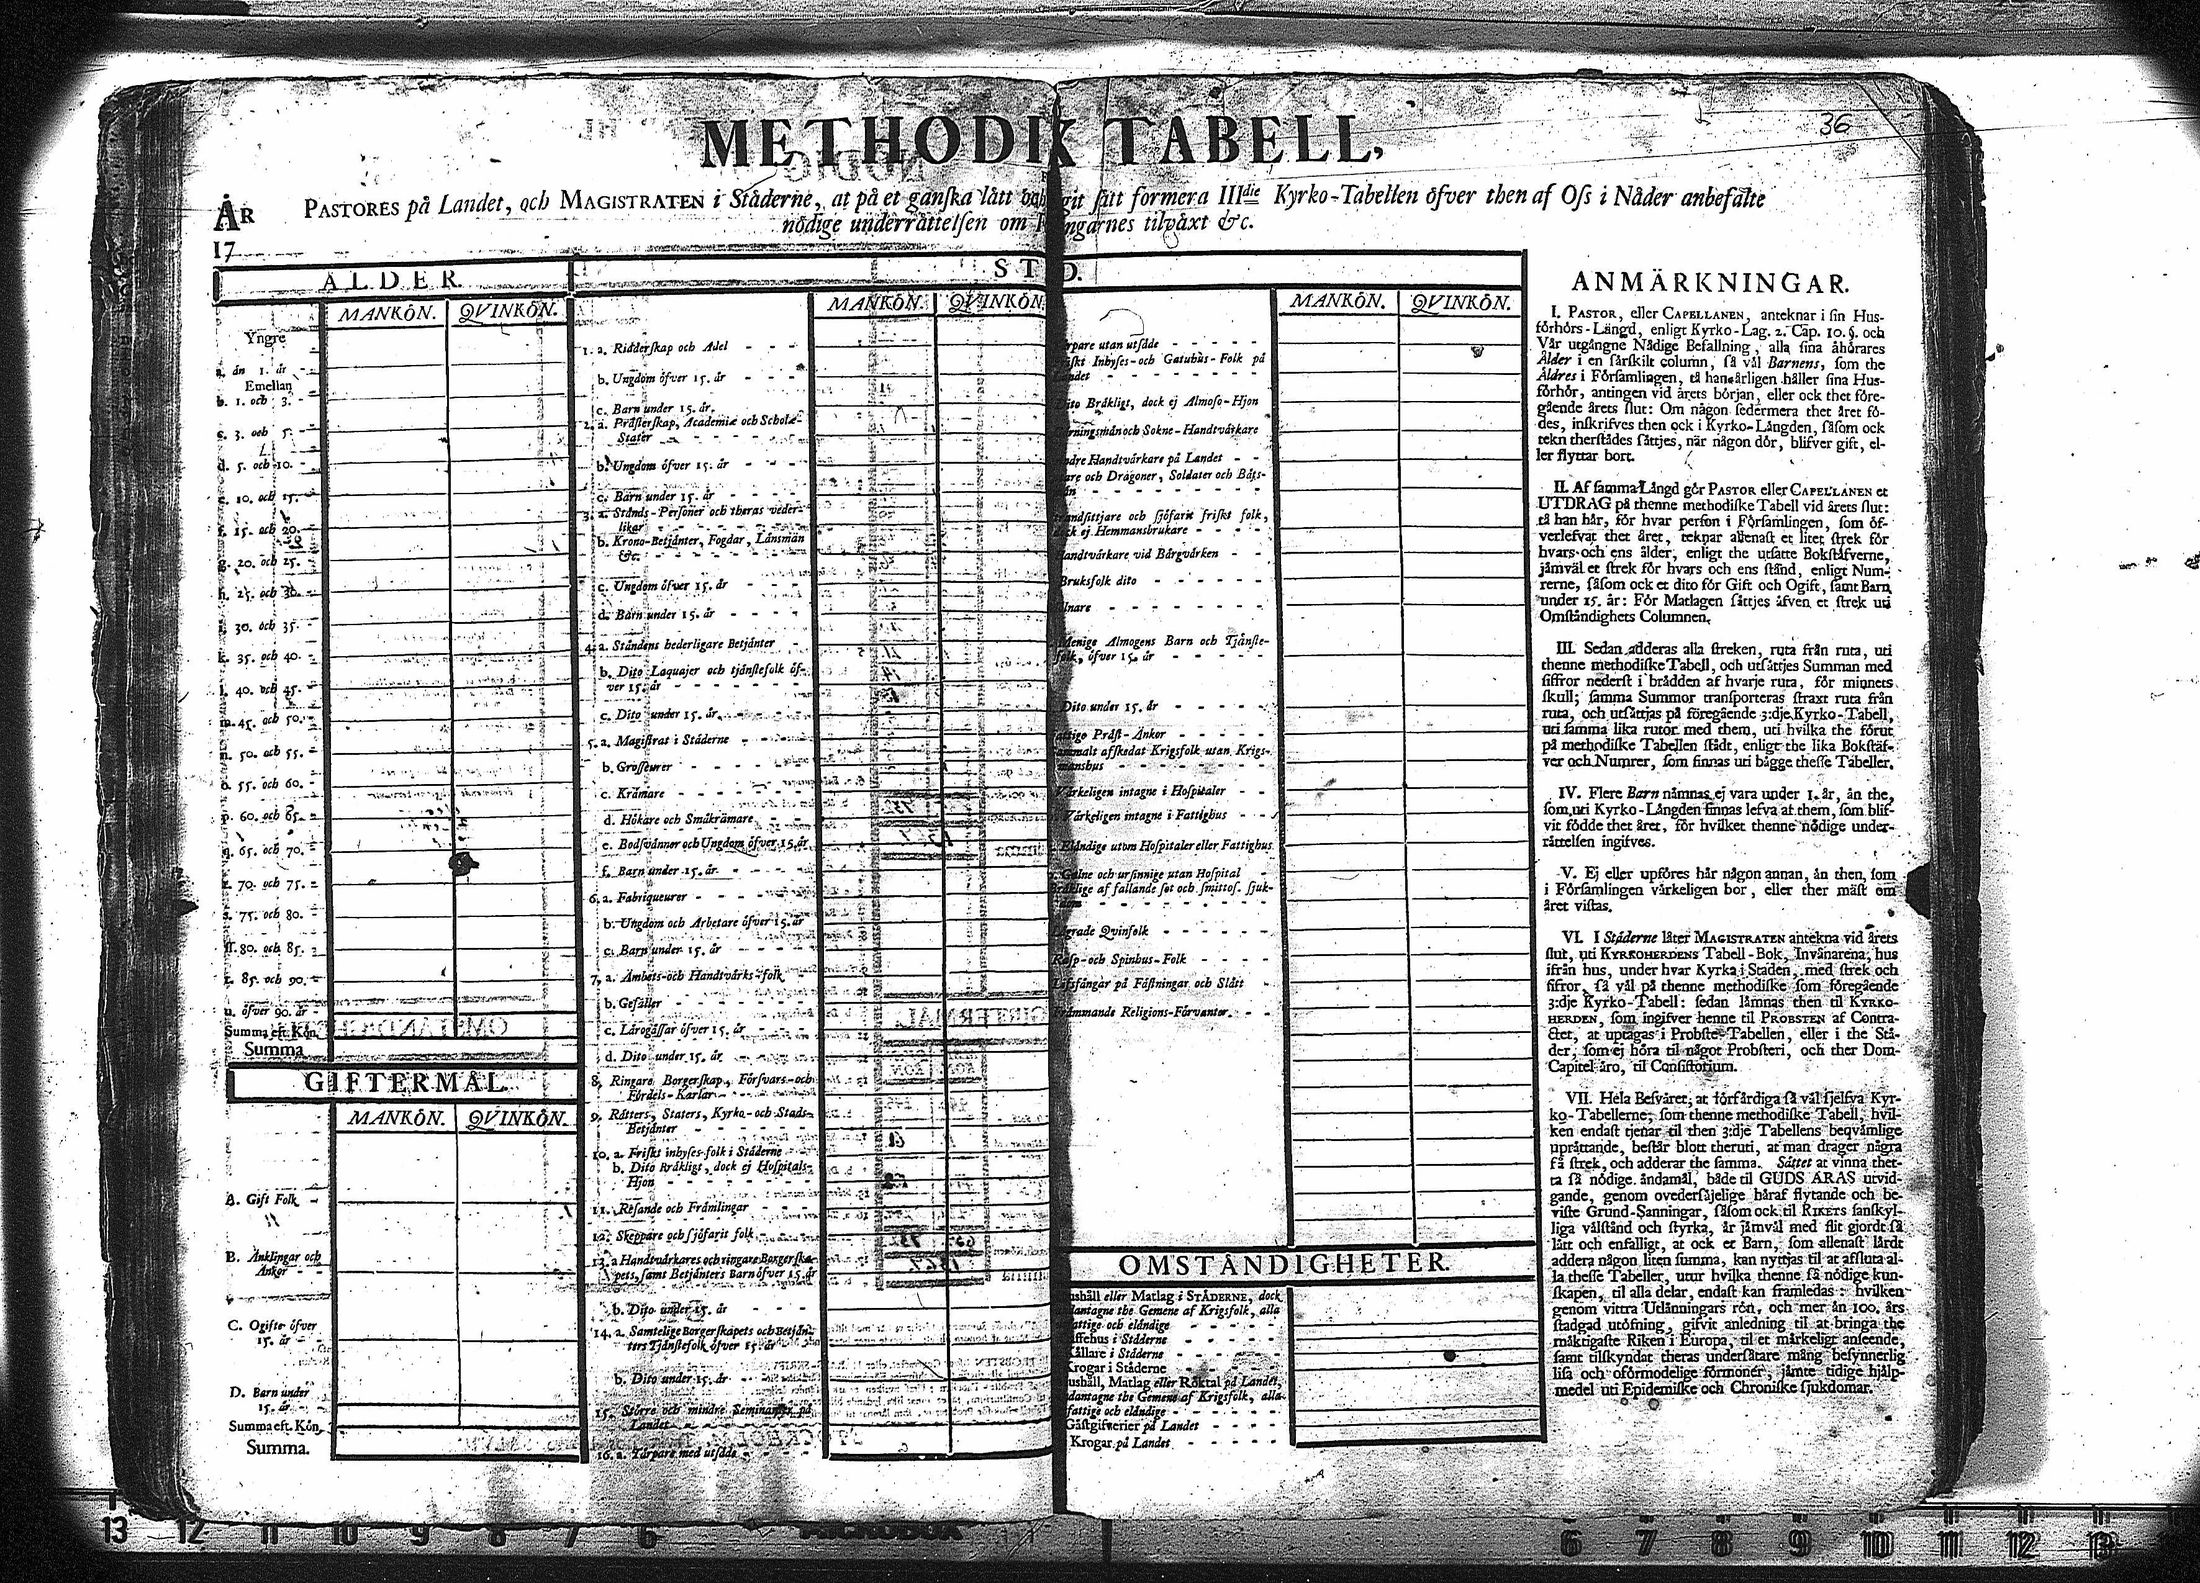 36
METHODIK TABELL,
ÅR PASTORES på Landet, och MAGISTRATEN i Städerne, at på et ganska lätt sätt formera IIIdie Kyrko-Tabellen öfver then af Oss i Nåder anbefalte
17 nödige underrättelsen om tilväxt &c.
ÅLDER.
MANKÖN. QVINKÖN.
Yngre
a. än 1. år
Emellan
b. 1. och 3.
c. 3. och 5.
d. 5. och 10.
e. 10. och 15.
f. 15. och 20.
g. 20. och 25.
h. 25. och 30.
i. 30. och 35.
k. 35. och 40.
l. 40. och 45.
m. 45. och 50.
n. 50. och 55.
o. 55. och 60.
p. 60. och 65.
q. 65. och 70.
r. 70. och 75.
s. 75. och 80.
ss. 80. och 85.
t. 85. och 90.
u. öfver 90. år
Summa eft. Kön.
Summa
GIFTERMÅL.
MANKÖN. QVINKÖN.
A. Gift Folk
B. Änklingar och
Änkor
C. Ogifte öfver
15. år
D. Barn under
15. år
Summa eft. Kön.
Summa.
STÅND.
MANKÖN. QVINKÖN.
1. a. Ridderskap och Adel
b. Ungdom öfver 15. år
c. Barn under 15. år.
2. a. Prästerskap, Academiæ och Scholæ-
Stater
b. Ungdom öfver 15. år
c. Barn under 15. år
3. a. Stånds-Personer och theras veder-
likar
b. Krono-Betjänter, Fogdar, Länsmän
&c.
c. Ungdom öfver 15. år
d. Barn under 15. år
4. a. Ståndens hederligare Betjänter
b. Dito Laquajer och tjänstefolk öf-
ver 15. år
c. Dito under 15. år.
5. a. Magistrat i Städerne
b. Grosseurer
c. Krämare
d. Hökare och Småkrämare
e. Bodsvänner och Ungdom öfver 15. år
f. Barn under 15. år.
6. a. Fabriqueurer
b. Ungdom och Arbetare öfver 15. år
c. Barn under 15. år
7. a. Ämbets-och Handtvärks-folk
b. Gesäller
c. Lärogåssar öfver 15. år
d. Dito under 15. år.
8. Ringare Borgerskap, Försvars-och
Fördels-Karlar
9. Rätters, Staters, Kyrko-och Stads-
Betjänter
10. a. Friskt inhyses-folk i Städerne
b. Dito Bräkligt, dock ej Hospitals-
Hjon
11. Resande och Främlingar
12. Skeppare och sjöfarit folk
13. a Handtvärkares och ringare Borgerska-
pets, samt Betjänters Barn öfver 15. år
b. Dito under 15. år
14. a. Samtelige Borgerskapets och Betjän-
ters Tjänstefolk öfver 15. år
b. Dito under 15. år
15. Större och mindre på
Landet
16. a. Tårpare med utsäde
MANKÖN. QVINKÖN.
utan utsäde
Inhyses-och Gatuhus-Folk på
Dito Bräkligt, dock ej Almoso-Hjon
och Sokne-Handtvärkare
Handtvärkare på Landet
och Dragoner, Soldater och Båts-
och sjöfarit friskt folk,
ej Hemmansbrukare
Handtvärkare vid Bärgvärken
Bruksfolk dito
Menige Almogens Barn och Tjänste-
folk, öfver 15. år
Dito under 15. år
Präst-Änkor
afskedat Krigsfolk utan Krigs-
manshus
Värkeligen intagne i Hospitaler
Värkeligen intagne i Fattighus
Eländige utom Hospitaler eller Fattighus
Galne och ursinnige utan Hospital
af fallande sot och smittos. sjuk-
dom
Qvinfolk
Rasp-och Spinhus-Folk
Lifsfångar på Fästningar och Slätt
Främmande Religions-Förvanter.
OMSTÄNDIGHETER.
eller Matlag i STÄDERNE, dock
the Gemene af Krigsfolk, alla
fattige och eländige
i Städerne
Källare i Städerne
Krogar i Städerne
Matlag eller Röktal på Landet,
the Gemene af Krigsfolk, alla
fattige och eländige
Gästgifverier på Landet
Krogar på Landet
ANMÄRKNINGAR.
I. PASTOR, eller CAPELLANEN, anteknar i sin Hus-
förhörs-Längd, enligt Kyrko-Lag. 2. Cap. 10. §. och
Vår utgångne Nådige Befallning, alla sina åhörares
Ålder i en särskilt column, så väl Barnens, som the
Äldres i Församlingen, tå han årligen håller sina Hus-
förhör, antingen vid årets början, eller ock thet före-
gående årets slut: Om någon sedermera thet året fö-
des, inskrifves then ock i Kyrko-Längden, såsom ock
tekn therstädes sättjes, när någon dör, blifver gift, el-
ler flyttar bort.
II. Af samma Längd gör PASTOR eller CAPELLANEN et
UTDRAG på thenne methodiske Tabell vid årets slut:
tå han här, för hvar person i Församlingen, som öf-
verlefvat thet året, teknar allenast et litet strek för
hvars och ens ålder, enligt the utsatte Bokstäfverne,
jämväl et strek för hvars och ens stånd, enligt Num-
rerne, såsom ock et dito för Gift och Ogift, samt Barn
under 15. år: För Matlagen sättjes äfven et strek uti
Omständighets Columnen.
III. Sedan adderas alla streken, ruta från ruta, uti
thenne methodiske Tabell, och utsättjes Summan med
siffror nederst i brädden af hvarje ruta, för minnets
skull; samma Summor transporteras straxt ruta från
ruta, och utsättjas på föregående 3:dje Kyrko-Tabell,
uti samma lika rutor med them, uti hvilka the förut
på methodiske Tabellen städt, enligt the lika Bokstäf-
ver och Numrer, som finnas uti bägge thesse Tabeller.
IV. Flere Barn nämnas ej vara under 1. år, än the,
som uti Kyrko-Längden finnas lefva at them, som blif-
vit födde thet året, för hvilket thenne nödige under-
rättelsen ingifves.
V. Ej eller upföres här någon annan, än then, som
i Församlingen värkeligen bor, eller ther mäst om
året vistas.
VI. I Städerne låter MAGISTRATEN antekna vid årets
slut, uti KYRKOHERDENS Tabell-Bok, Invånarena, hus
ifrån hus, under hvar Kyrka i Staden, med strek och
siffror, så väl på thenne methodiske som föregående
3:dje Kyrko-Tabell: sedan lämnas then til KYRKO-
HERDEN, som ingifver henne til PROBSTEN af Contra-
ctet, at uptagas i Probste-Tabellen, eller i the Stä-
der, som ej höra til något Probsteri, och ther Dom-
Capitel äro, til Consistorium.
VII. Hela Besväret, at förfärdiga så väl sjelfva Kyr-
ko-Tabellerne, som thenne methodiske Tabell, hvil-
ken endast tjenar til then 3:dje Tabellens beqvämlige
uprättande, består blott theruti, at man drager några
få strek, och adderar the samma. Sättet at vinna thet-
ta så nödige ändamål, både til GUDS ÄRAS utvid-
gande, genom ovedersäjelige häraf flytande och be-
viste Grund-Sanningar, såsom ock til RIKETS sanskyl-
liga välstånd och styrka, är jämväl med flit gjordt så
lätt och enfalligt, at ock et Barn, som allenast lärdt
addera någon liten summa, kan nyttjas til at afsluta al-
la thesse Tabeller, utur hvilka thenne så nödige kun-
skapen, til alla delar, endast kan framledas: hvilken
genom vittra Utlänningars rön, och mer än 100. års
stadgad utöfning, gifvit anledning til at bringa the
mäktigaste Riken i Europa, til et märkeligt anseende,
samt tilskyndat theras undersåtare mång besynnerlig
lisa och oförmodelige förmoner, jämte tidige hjälp-
medel uti Epidemiske och Chroniske sjukdomar.
13 12 11 10 9 8 7 6 6 7 8 9 10 11 12 13